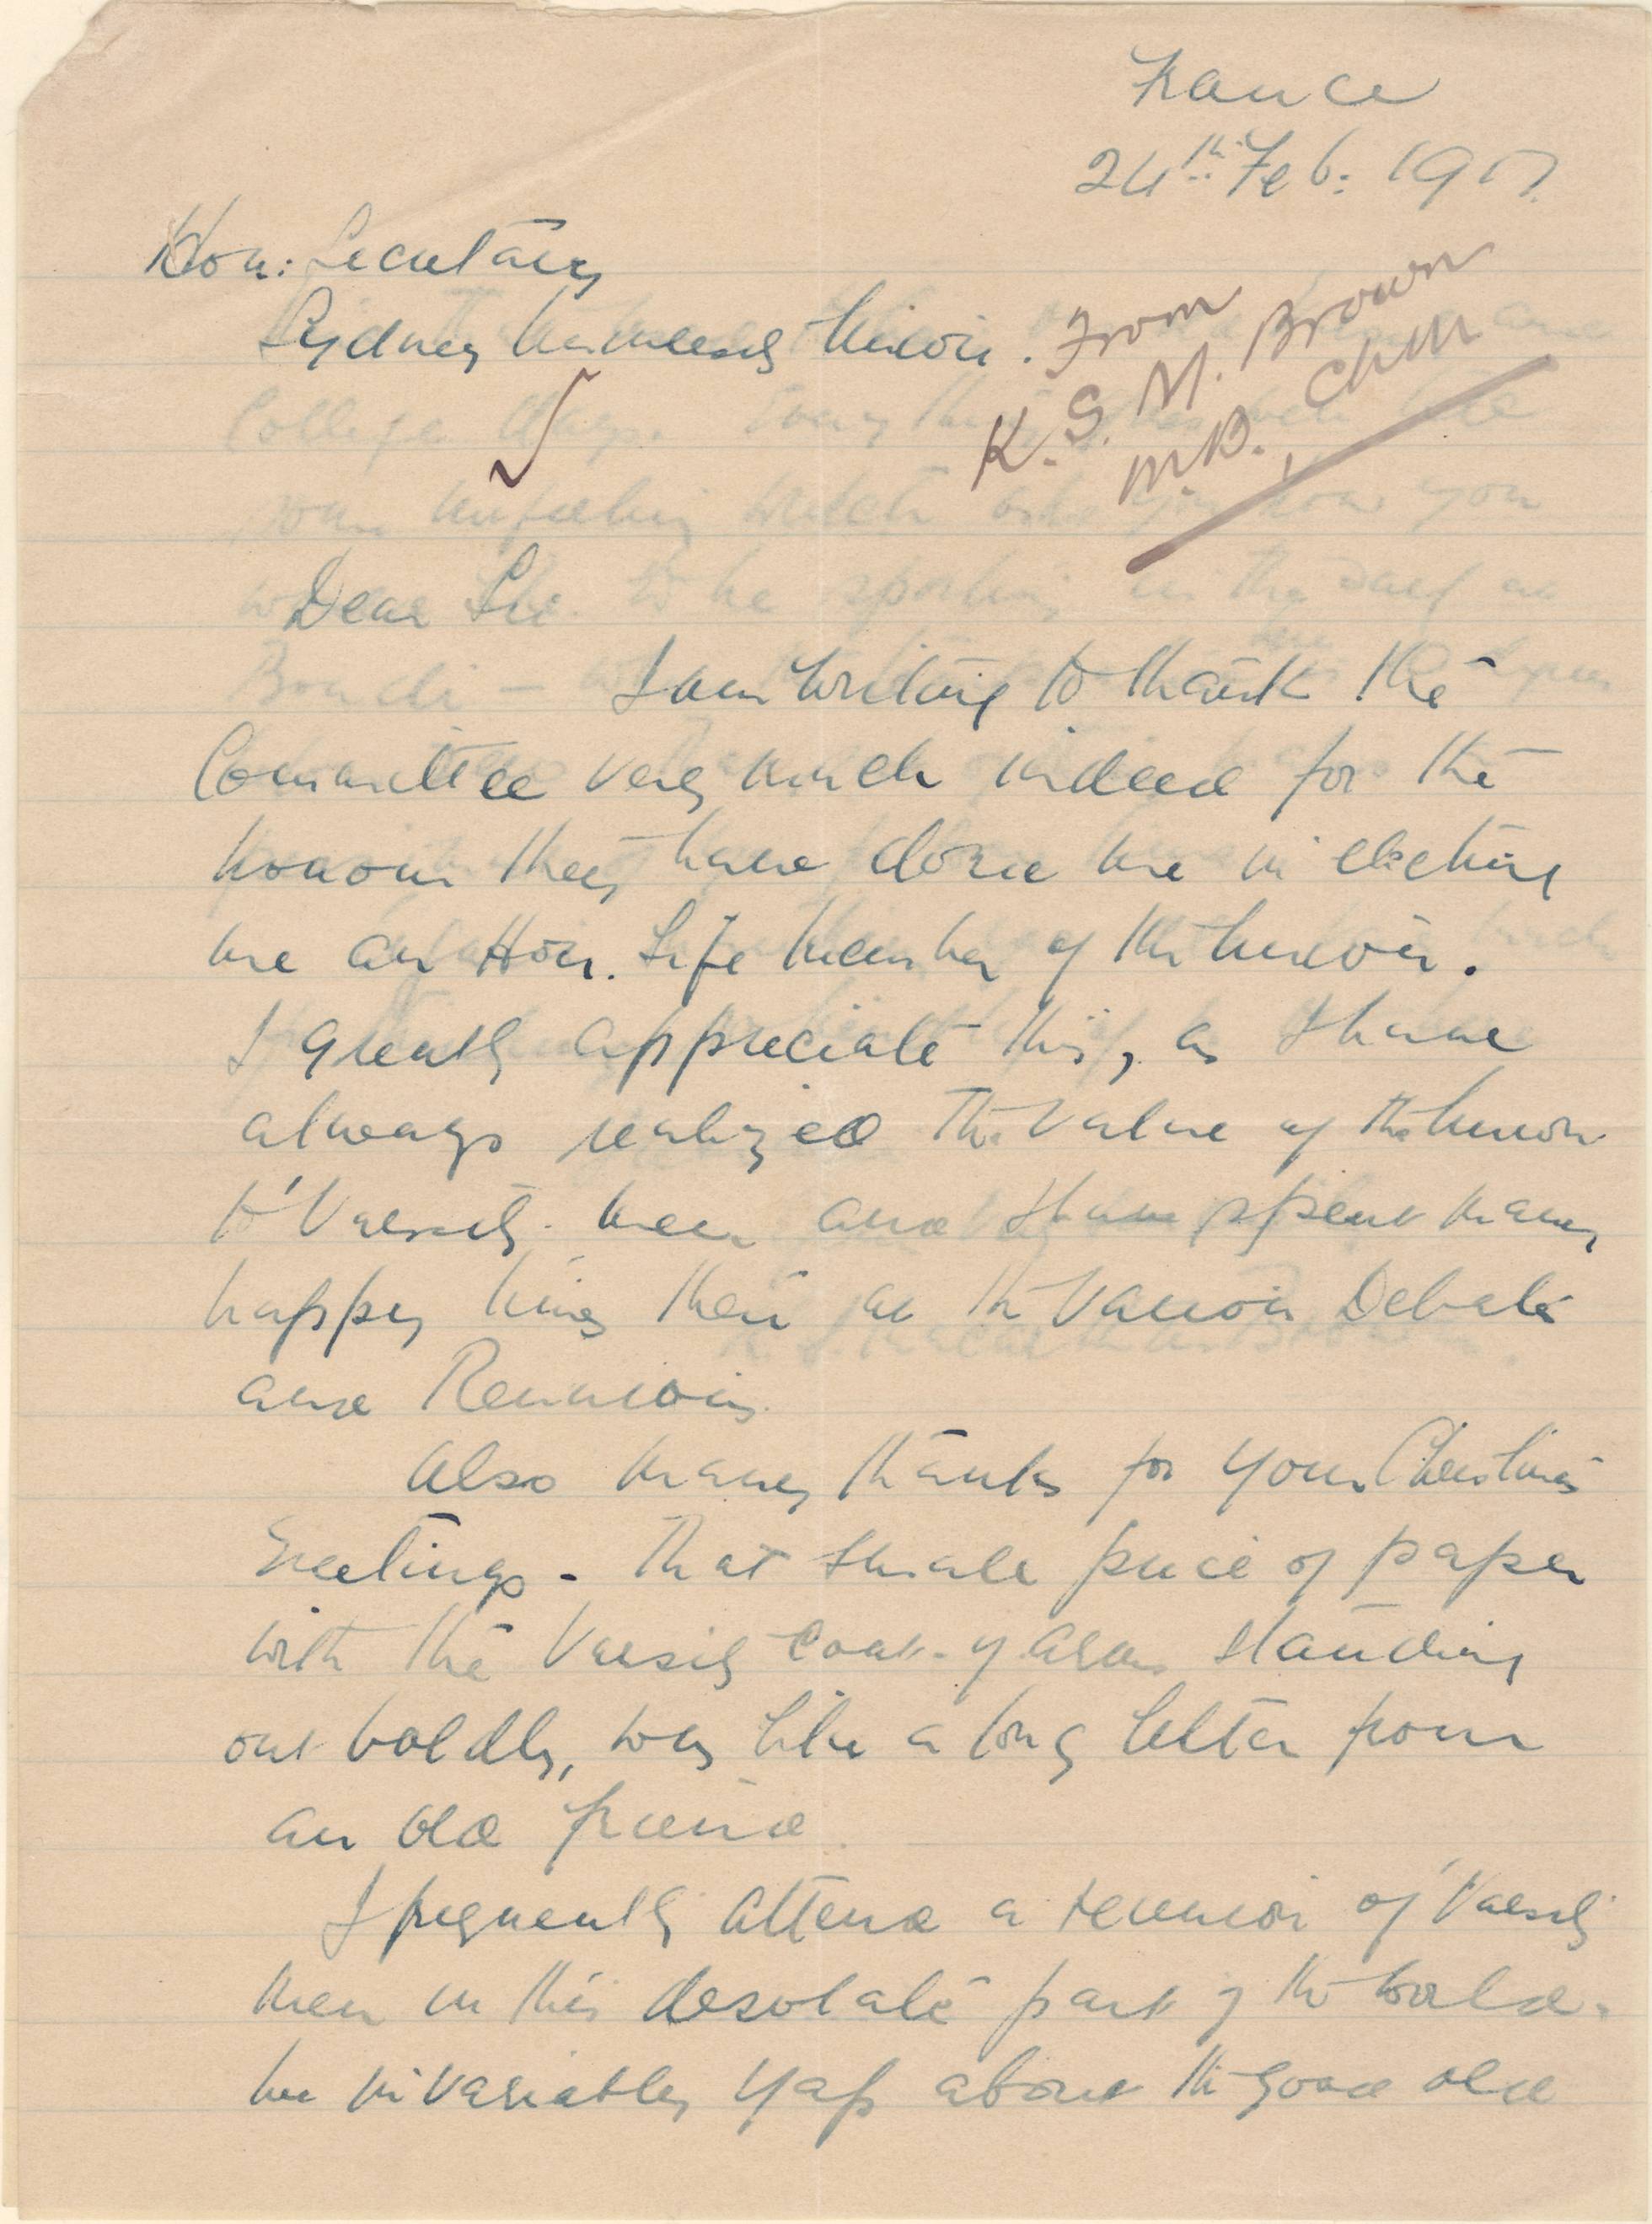 France
24th Feb: 1917.
Hon: Secretary
Sydney University Union.
From
K. S. M. Brown
MB. ChM
Dear Sir
I am writing to thank the
Committee very much indeed for the
honour they have done me in electing
me an Hon. Life Member of the Union.
I greatly appreciate this, as I have
always realized the value of the Union
to 'Varsity men and I have spent many
happy times there at the various Debates
and Reunions.
Also many thanks for your Christmas
Greetings - That small piece of paper
with the Varsity Coat-of-arms standing
out boldly, was like a long letter from
an old friend.
I frequently attend a reunion of 'Varsity
men in this desolate part of the world.
We invariably yap about the good old